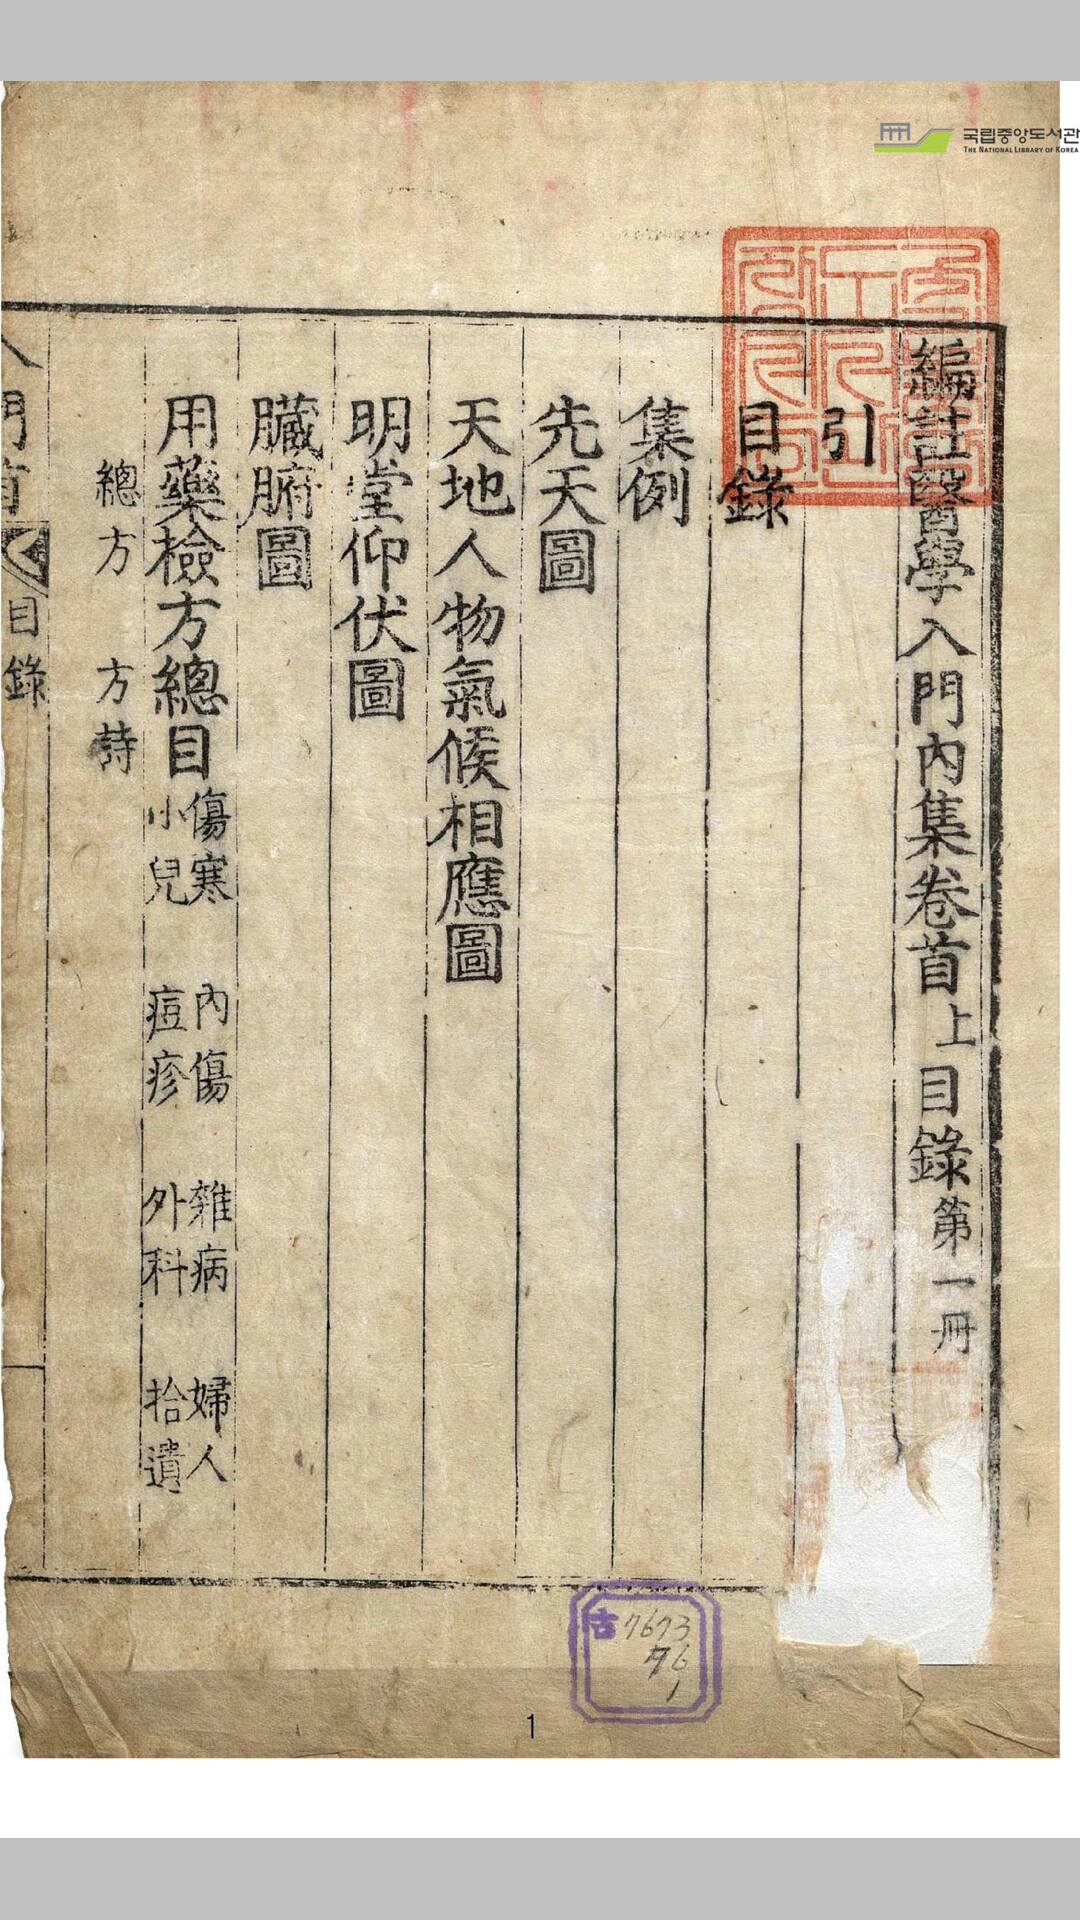 국립중앙도서관
THE NATIONAL LIBRARY OF KOREA
編註醫學入門內集卷首上目錄第一冊
引
目錄
集例
先天圖
天地人物氣候相應圖
明堂仰伏圖
臟腑圖
用藥檢方總目 傷寒 內傷 雜病 婦人
小兒 痘疹 外科 拾遺
總方 方詩
入門首 目錄
古7673
76
1
1